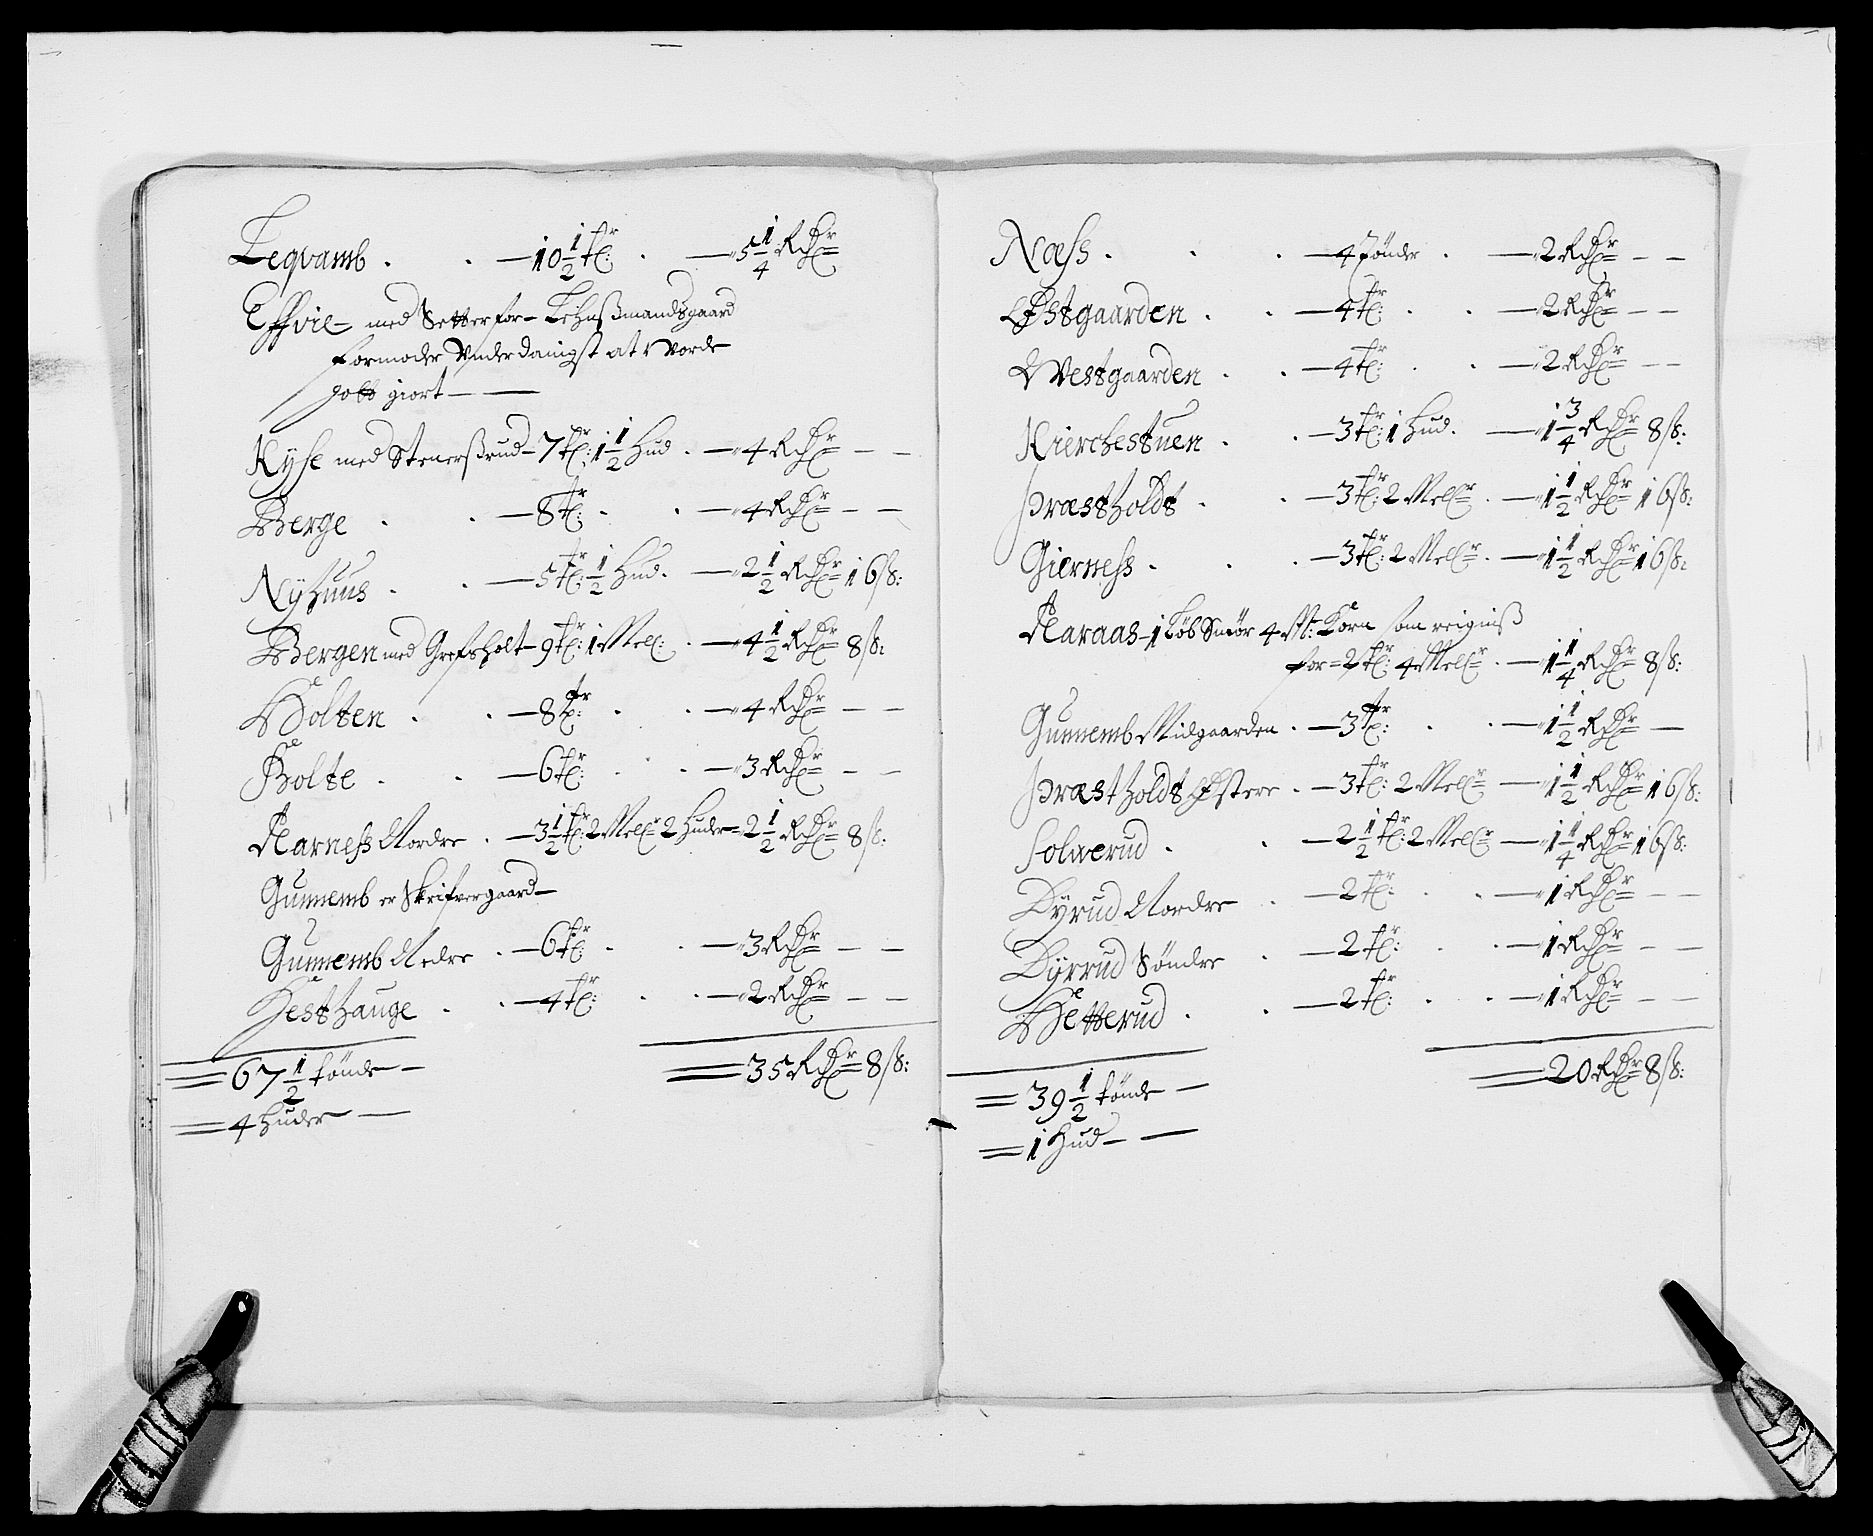 Leqvamb . . — 10 1/2 tr: . — 5 1/4 Rdr
Effvie — med Setter for — Lehnßmandsgaard
formoder Underdanigst at vorde
gott giort — —
Ryse med Stenerßrud — 7 tr: 1 1/2 Hud . — 4 Rdr — —
Berge . . — 8 tr: . . — 4 Rdr — —
Nyhuus . . — 5 tr: 1/2 Hud . — 2 1/2 Rdr 16 ß:
Bergen med Grefsholt — 9 tr: 1 Mel: . — 4 1/2 Rdr 8 ß:
Holten . . — 8 tr: . . — 4 Rdr — —
Holte . . — 6 tr: . . — 3 Rdr — —
Aarness Nordre . — 3 1/2 tr: 2 Melr 2 Huder = 2 1/2 Rdr 8 ß:
Gunnemb er Skrifvergaard —
Gunnemb Nedre . — 6 tr: . . — 3 Rdr — —
Hesthauge . . — 4 tr: . . — 2 Rdr — —
67 1/2 tönde — 35 Rdr 8 ß:
4 Huder —
Næss . . . — 4 Tönder . — 2 Rdr — —
Østgaarden . . — 4 tr: . . — 2 Rdr — —
Westgaarden . . — 4 tr: . . — 2 Rdr — —
Kierchestuen . . — 3 tr: 1 Hud . — 1 3/4 Rdr 8 ß:
Præstholdt . . — 3 tr: 2 Melr . — 1 1/2 Rdr 16 ß:
Gierness . . . — 3 tr: 2 Melr . — 1 1/2 Rdr 16 ß:
Aaraas — 1 Löb Smör 4 M: Korn som reigniß
for = 2 tr: 4 Melr . — 1 1/4 Rdr 8 ß:
Gunnemb Midgaarden . — 3 tr: . . — 1 1/2 Rdr —
Præstholdt Østere . — 3 tr: 2 Melr — 1 1/2 Rdr 16 ß:
Solverud . . — 2 1/2 tr: 2 Melr — 1 1/4 Rdr 16 ß:
Dyrud Nordre . — 2 tr: . . — 1 Rdr — —
Dyrrud Söndre . — 2 tr: . . — 1 Rdr — —
Hetterud . . — 2 tr: . . — 1 Rdr — —
39 1/2 tönde — 20 Rdr 8 ß:
1 Hud — —